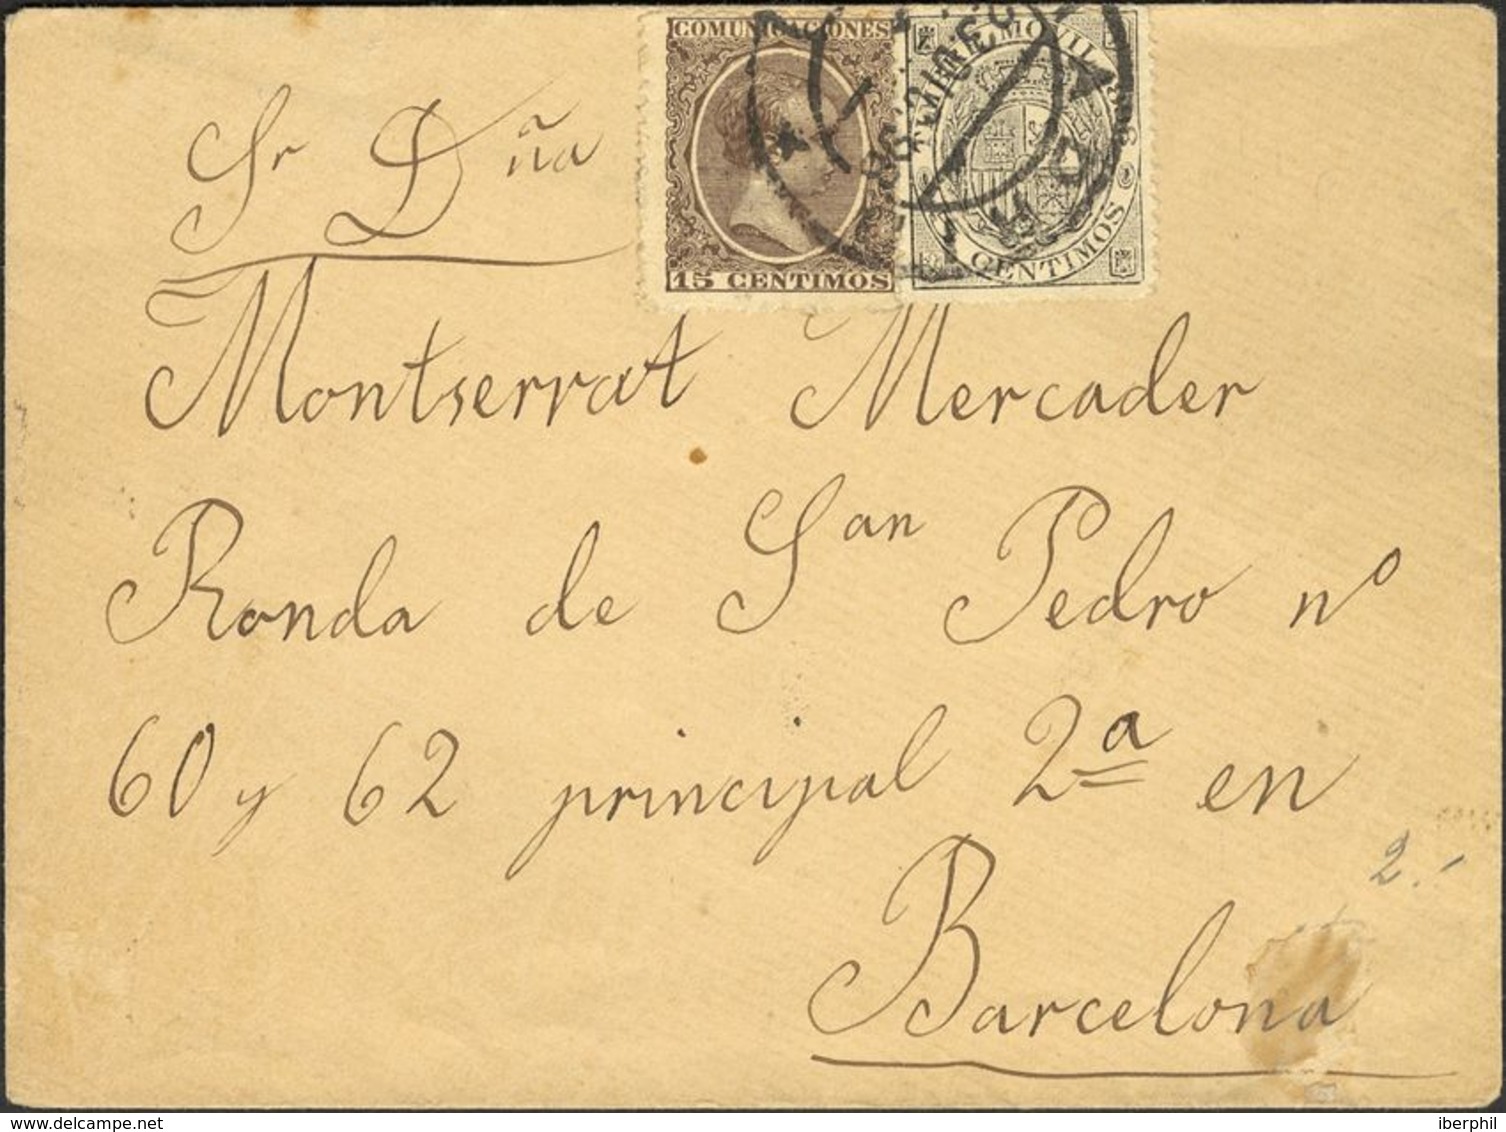 COMUNICACIONES
15 CENTIMOS
MOVIL
CENTIMOS
Sr Dña
Montserrat Mercader
Ronda de San Pedro nº
60 y 62 principal 2ª en
Barcelona
2.-
delcampe.net
iberphil